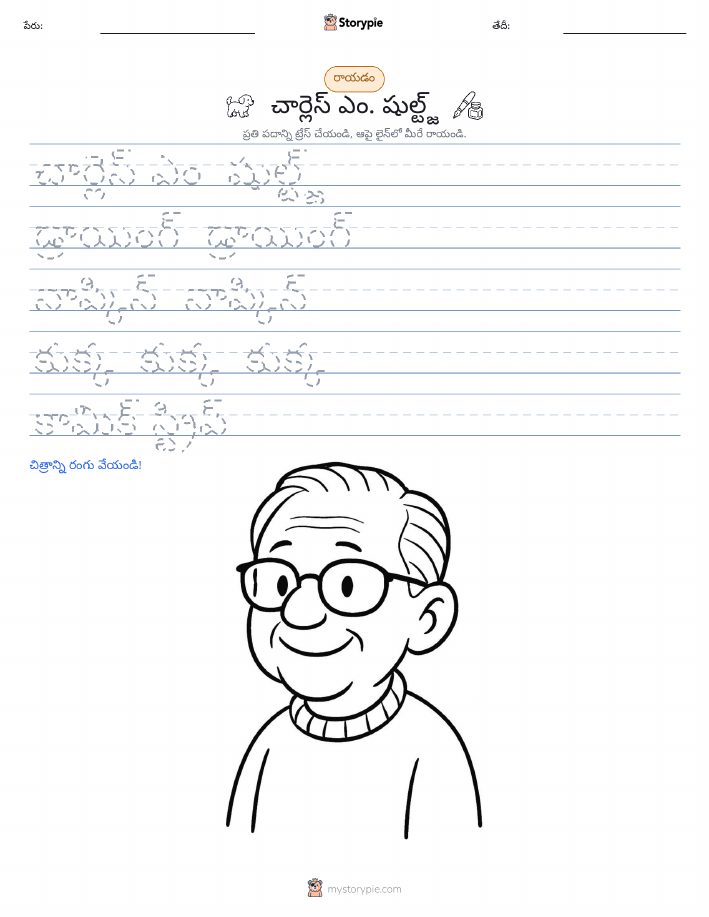 పేరు:
Storypie
తేదీ:
రాయడం
చార్లెస్ ఎం. షుల్ట్జ్
ప్రతి పదాన్ని ట్రేస్ చేయండి, ఆపై లైన్‌లో మీరే రాయండి.
చార్లెస్ ఎం షుల్ట్జ్
డ్రాయింగ్ డ్రాయింగ్
నాప్కిన్ నాప్కిన్
కుక్క కుక్క కుక్క
కామిక్ స్ట్రిప్
చిత్రాన్ని రంగు వేయండి!
mystorypie.com